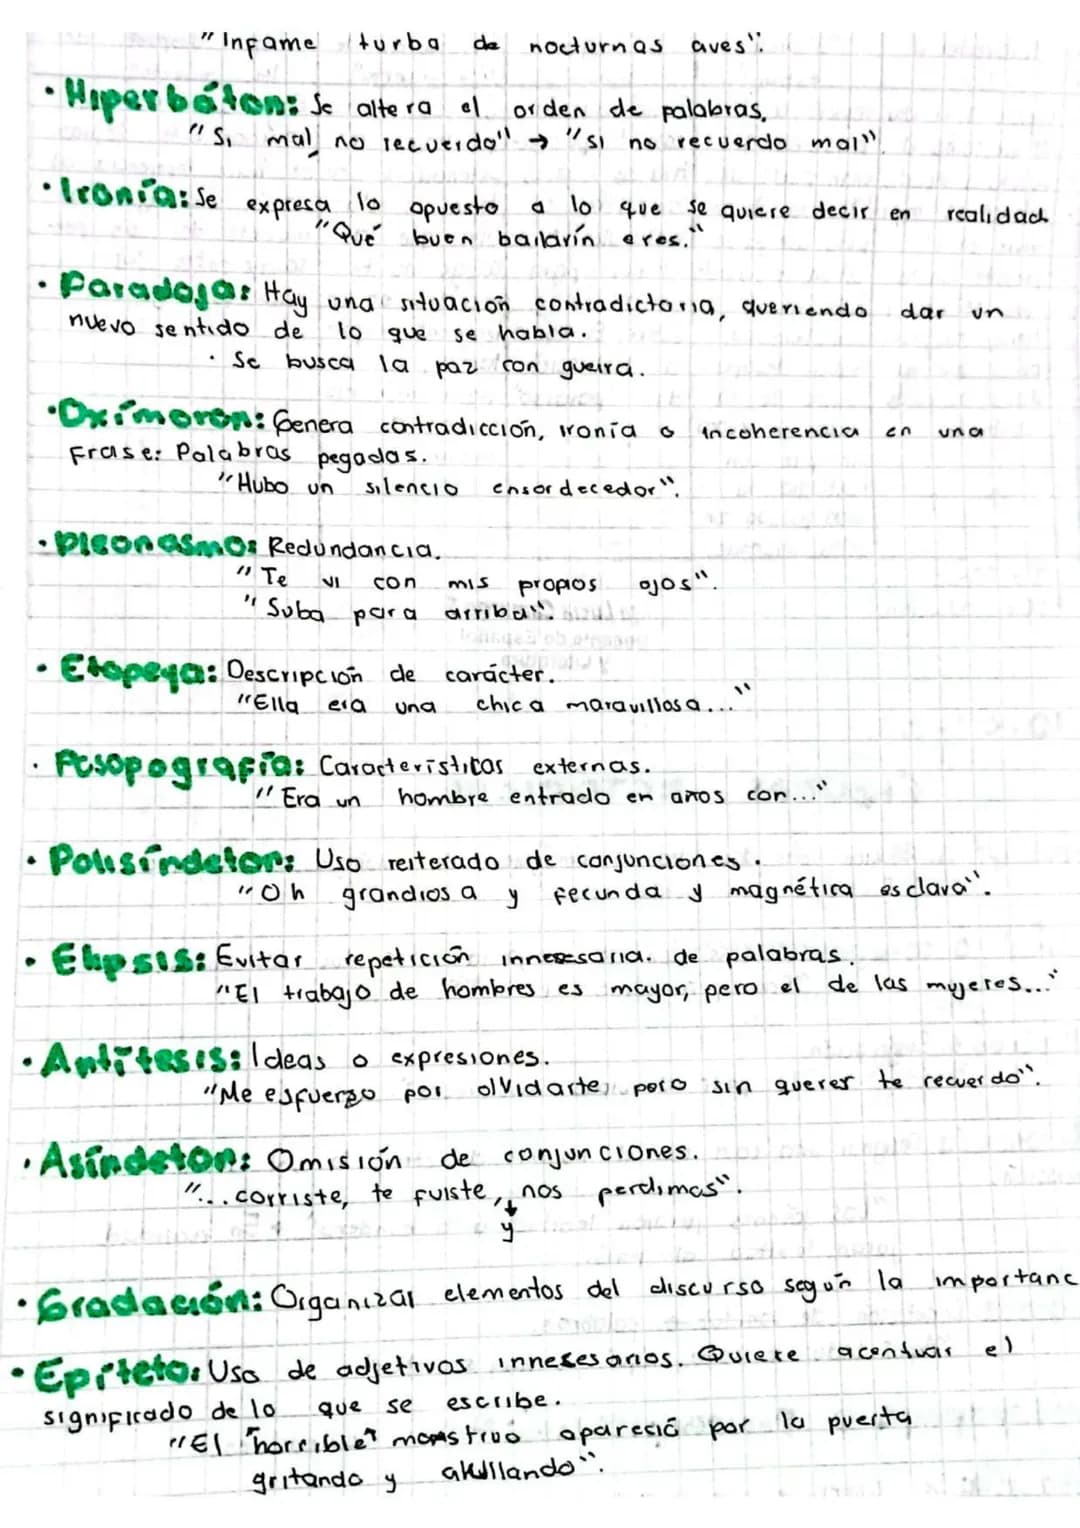 "Infame turba de nocturnas aves".
• Hiperbáton: Se altera el orden de palabras.
"Si mal no recuerdo" → "si no recuerdo mal".
• Ironía: Se expresa lo opuesto a lo que se quiere decir en realidad
"Qué buen bailarín eres."
• Paradoja: Hay una situación contradictoria, queriendo dar un
nuevo sentido de lo que se habla.
• Se busca la paz con guerra.
• Oxímoron: Genera contradicción, ironía o incoherencia en una
frase: Palabras pegadas.
"Hubo un silencio ensordecedor".
• Pleonasmo: Redundancia.
"Te vi con mis propios ojos".
"Suba para arriba".
• Etopeya: Descripción de carácter.
"Ella era una chica maravillosa..."
• Posopografía: Características externas.
"Era un hombre entrado en años con..."
• Polisíndeton: Uso reiterado de conjunciones.
"Oh grandiosa y fecunda y magnética esclava".
• Elipsis: Evitar repetición innesesaria. de palabras.
"El trabajo de hombres es mayor, pero el de las mujeres..."
• Antítesis: Ideas o expresiones.
"Me esfuerzo por olvidarte, pero sin querer te recuerdo".
• Asíndeton: Omisión de conjunciones.
"... corriste, te fuiste, nos perdimos".
y
• Gradación: Organizar elementos del discurso según la importanc
• Epíteto: Uso de adjetivos innesesarios. Quiere acentuar el
significado de lo que se escribe.
"El "horrible" monstruo aparesió por la puerta
gritando y akullando".